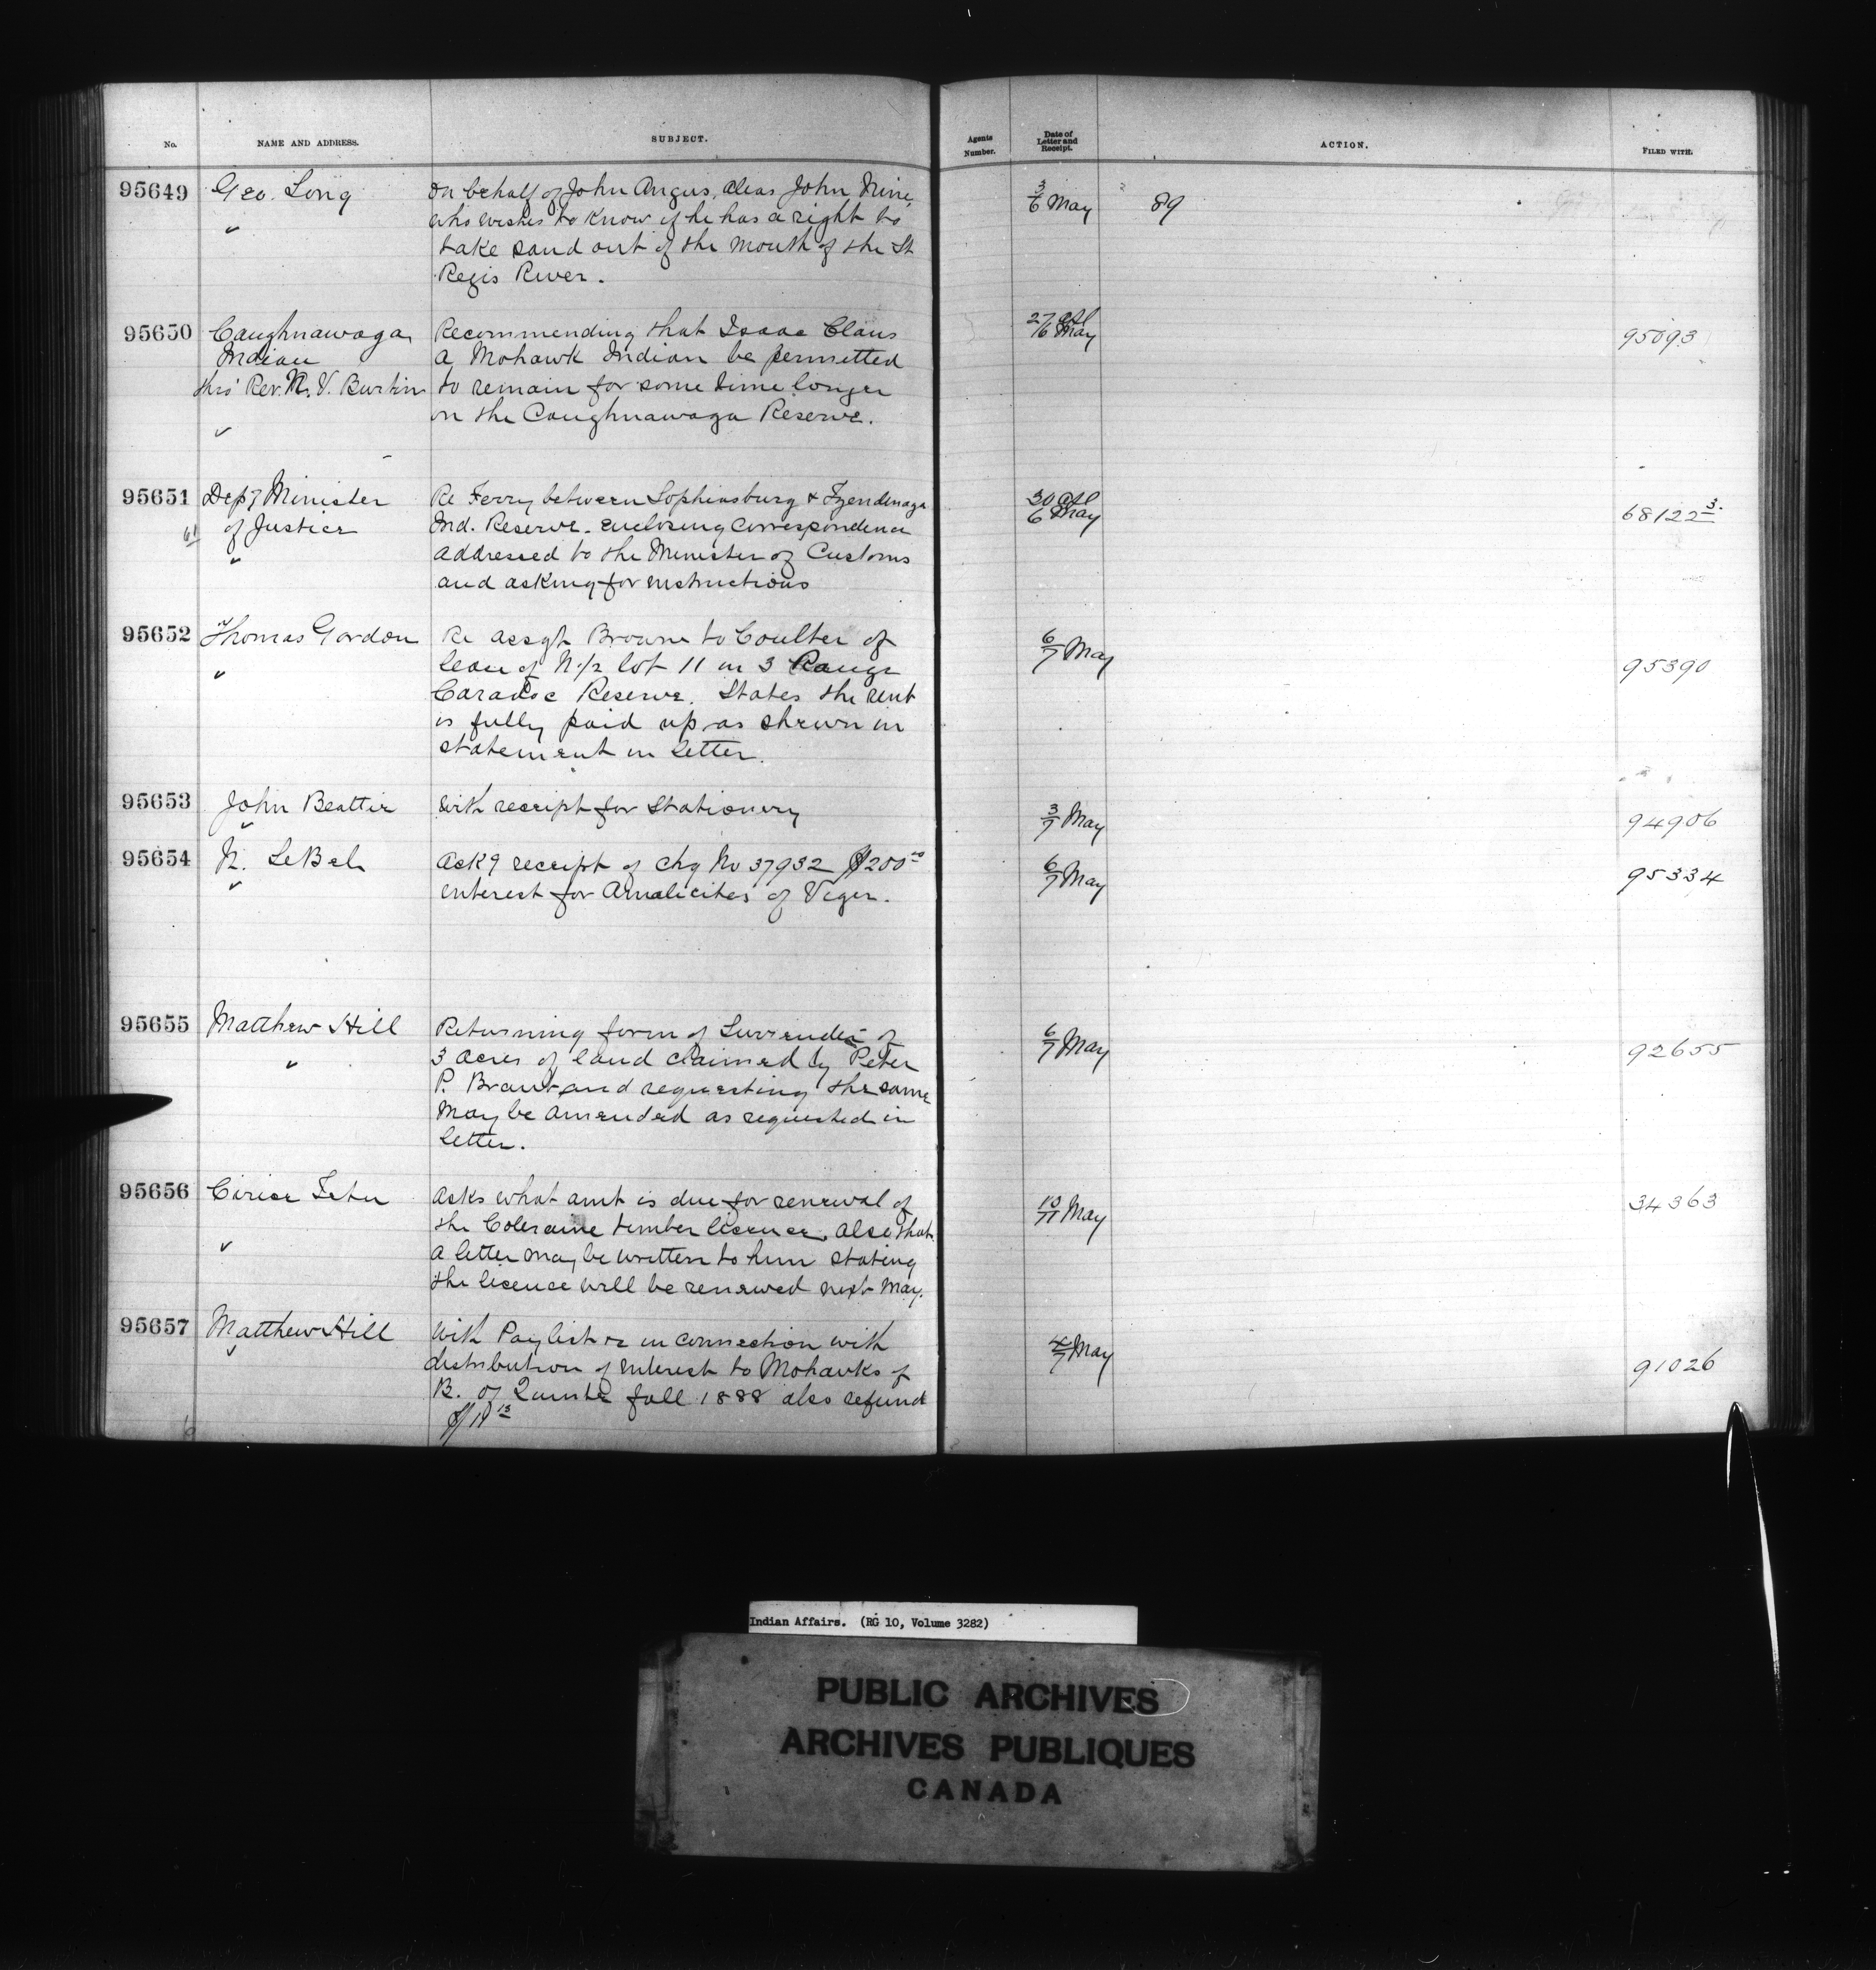 No.
NAME AND ADDRESS.
SUBJECT.
Agents Number.
Date of Letter and Receipt.
ACTION.
FILED WITH.
95649
Geo. Long
"
On behalf of John Angus, alias John Nine,
who wishes to know if he has a right to
take sand out of the mouth of the St
Regis River.
3/6 May
89
95650
Caughnawaga
Indian
thro' Rev. N. V. Burtin
Recommending that Isaac Claus
a Mohawk Indian be permitted
to remain for some time longer
on the Caughnawaga Reserve.
27 Apl
/6 May
95093
95651
Depy Minister
of Justice
"
Re Ferry between Sophiasburg & Tyendinaga
Ind. Reserve - enclosing correspondence
addressed to the Minister of Customs
and asking for instructions
30 Apl
6 May
68122 3.
95652
Thomas Gordon
"
Re assgt Browne to Coulter of
lease of N.1/2 lot 11 in 3 Range
Caradoc Reserve. States the rent
is fully paid up as shewn in
statement in letter.
6/7 May
95390
95653
John Beattie
"
With receipt for Stationery
3/7 May
94906
95654
N. LeBel
"
Ackg receipt of chq No 37932 $200 00
interest for Amalicites of Viger.
6/7 May
95334
95655
Matthew Hill
"
Returning form of Surrender of
3 acres of land claimed by Peter
P. Brant and requesting the same
may be amended as requested in
letter.
6/7 May
92655
95656
Cirice Tetu
Asks what amt is due for renewal of
the Coleraine timber licence, also that
a letter may be written to him stating
the licence will be renewed next May.
10/11 May
34363
95657
Matthew Hill
With Paylist &c in connection with
distribution of interest to Mohawks of
B. of Quinte fall 1888 also refund
$11 13
4/7 May
91026
Indian Affairs. (RG 10, Volume 3282)
PUBLIC ARCHIVES
ARCHIVES PUBLIQUES
CANADA